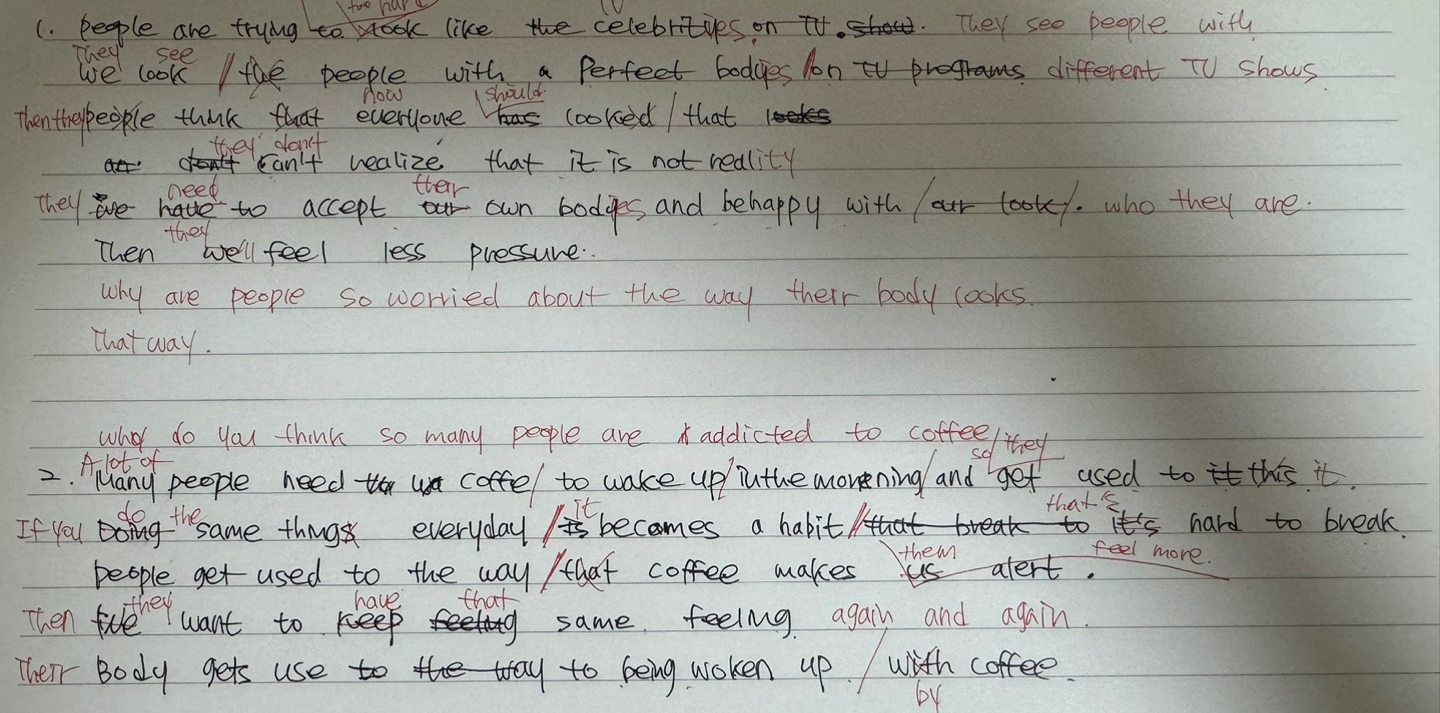 too hard
1. people are trying to look like the celebrities on TV. show. They see people with
They see
we look / the people with a perfect bodies / on TV programs different TV shows
how should
Then they people think that everyone has looked / that looks
they don't
don't can't realize that it is not reality
need their
They we have to accept our own bodies and behappy with / our look /. who they are.
they
Then we'll feel less pressure.
Why are people so worried about the way their body looks.
That way.
why do you think so many people are addicted to coffee
A lot of so they
2. Many people need coffe / to wake up / in the morening / and get used to it this it.
do the it that's
If you Doing same things everyday / is becomes a habit / that break to it's hard to break.
them feel more.
people get used to the way / that coffee makes us alert.
they have that
Then we want to keep feeling same feeling again and again.
Their Body gets use to the way to being woken up / with coffee.
by